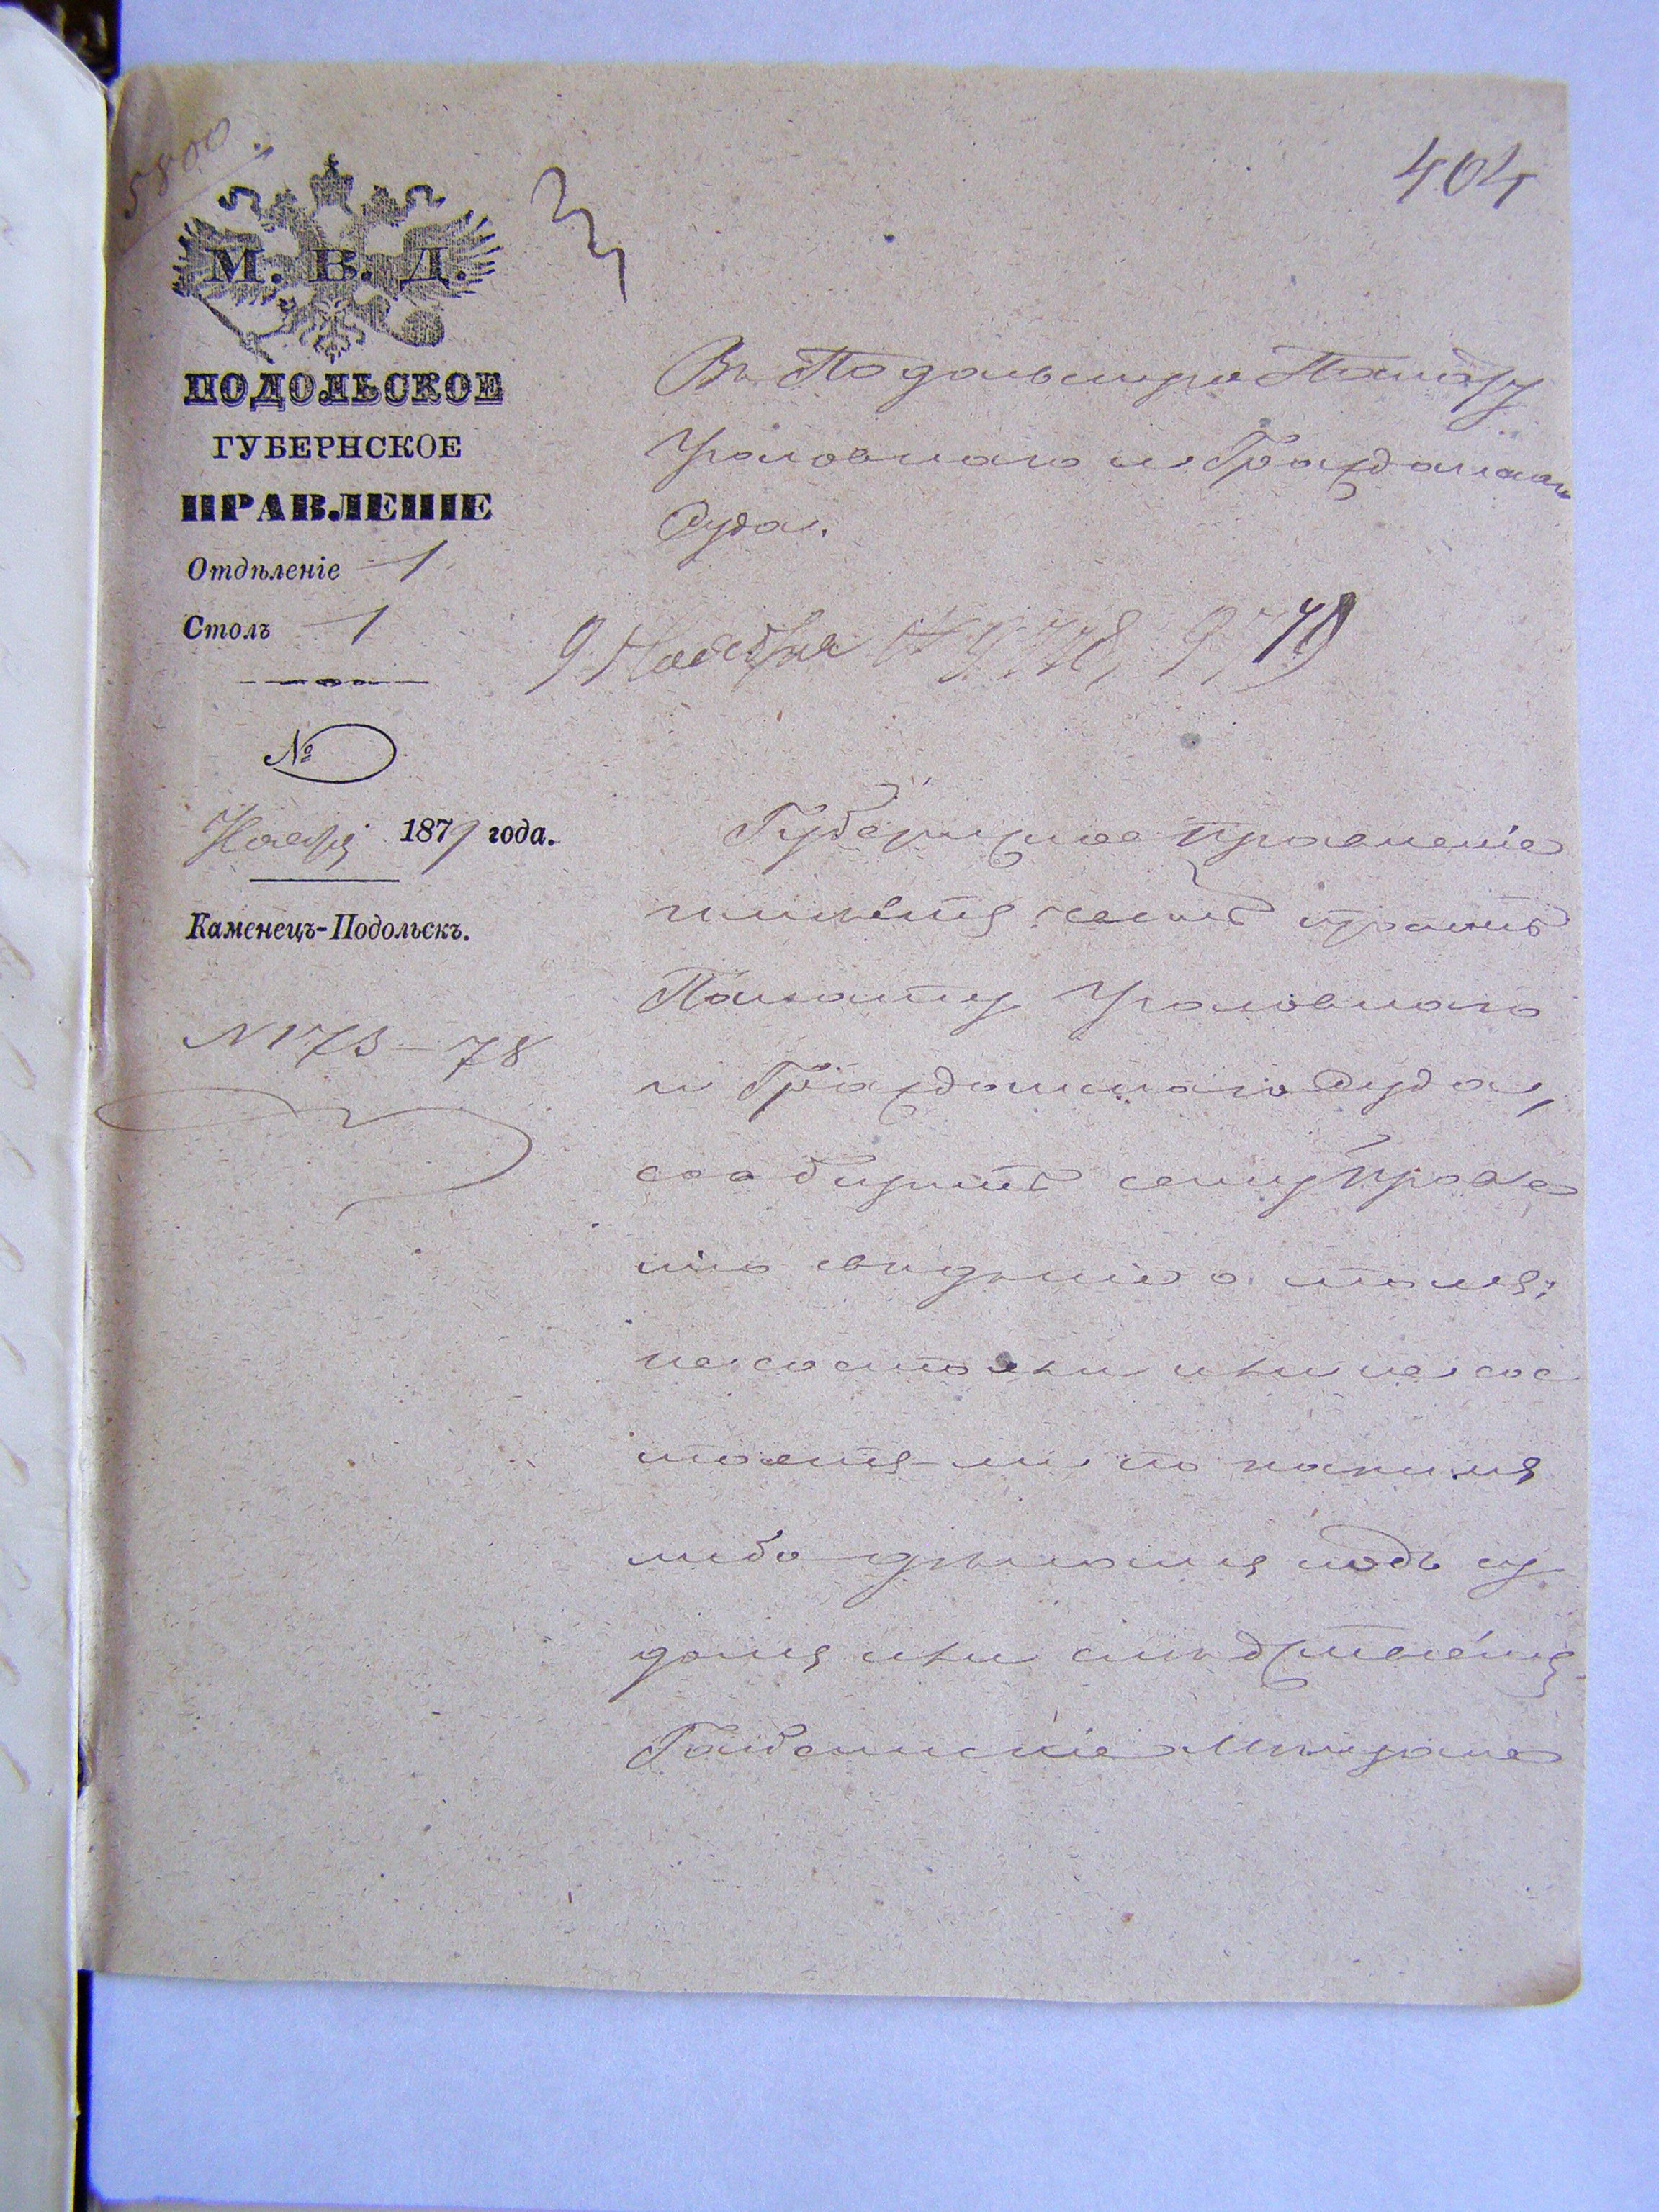 5800.
404
М. В. Д.
ПОДОЛЬСКОЕ
ГУБЕРНСКОЕ
ПРАВЛЕНІЕ
Отдѣленіе 1
Столъ 1
№
Ноябр 1879 года.
Каменецъ-Подольскъ.
N 173-78
Въ Подольскую Палату
Уголовнаго и Гражданскаго
Суда.
9 Ноября № 9,778, 9,779
Губернское правленіе
имѣетъ честь просить
Палату Уголовнаго
и Гражданскаго Суда,
сообщить сему Правле
нію свѣдѣніе о томъ:
не состояли или не сос
тоятъ-ли по какимъ
либо дѣламъ подъ су
домъ или слѣдствіемъ
Гайсинскіе Мѣщане